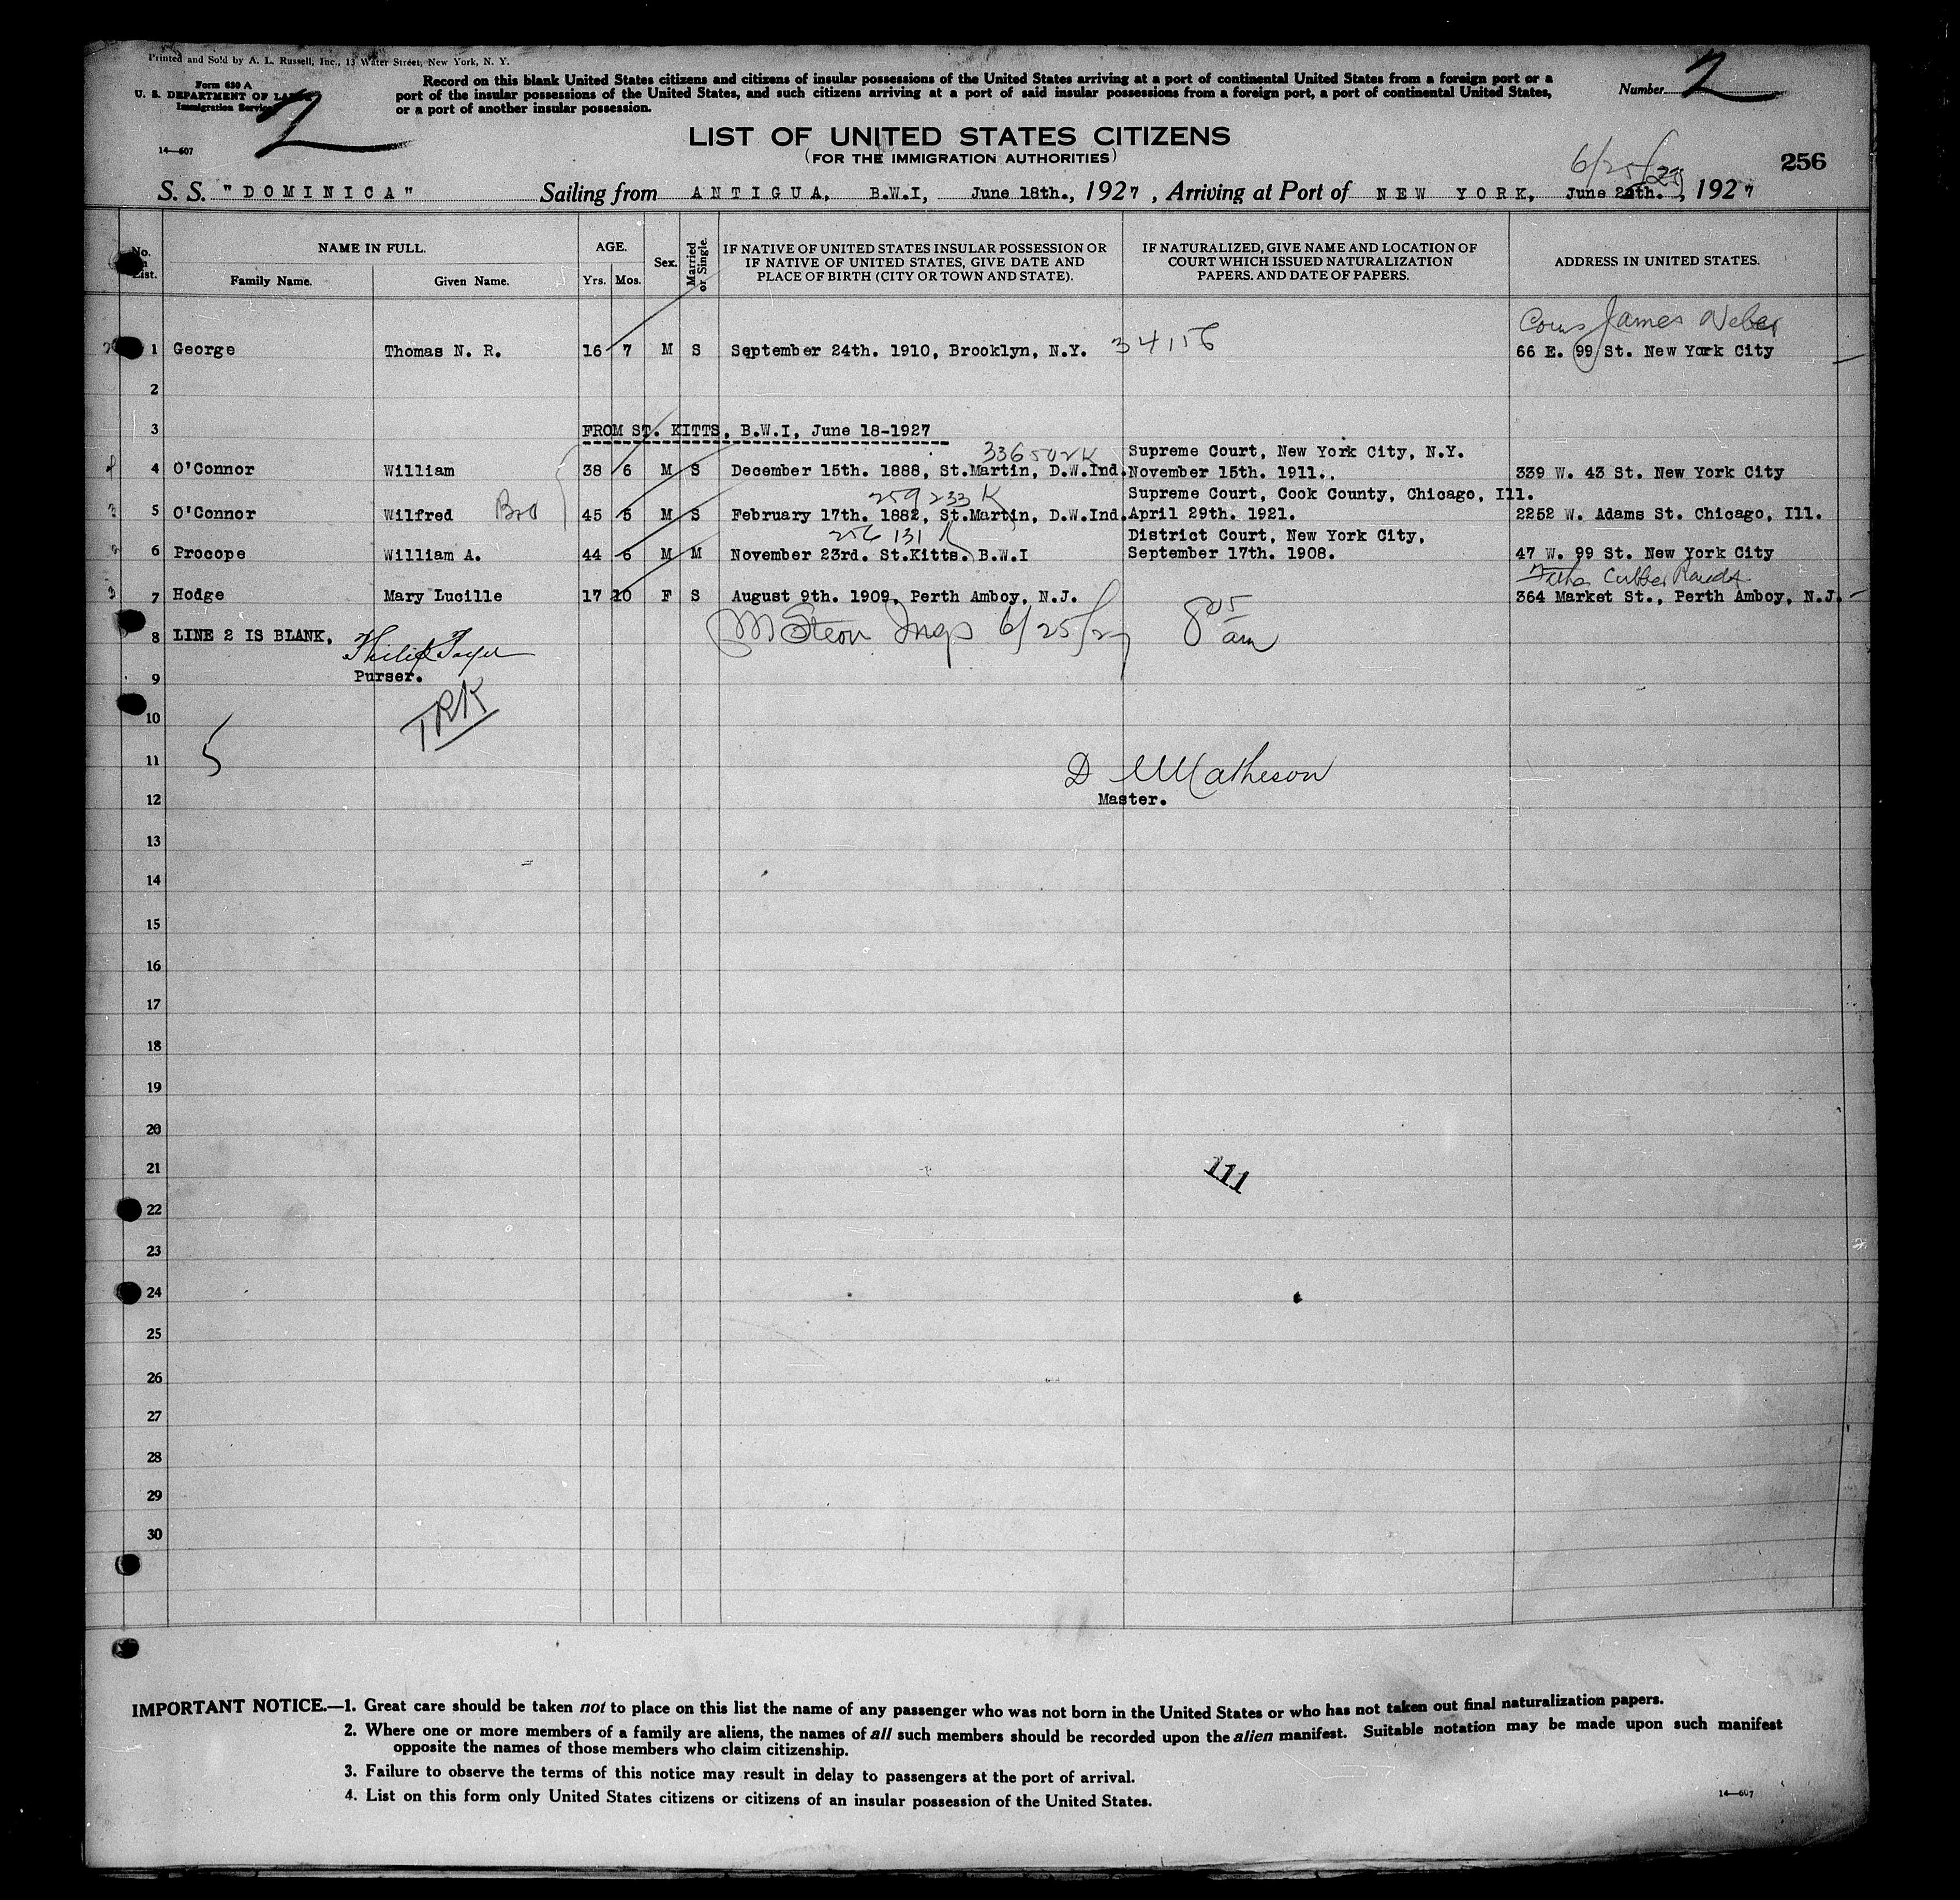 Printed and Sold by A. L. Russell, Inc., 13 Water Street, New York, N. Y.
Form 630 A
U. S. DEPARTMENT OF LABOR
Immigration Service
2
14—607
Record on this blank United States citizens and citizens of insular possessions of the United States arriving at a port of continental United States from a foreign port or a
port of the insular possessions of the United States, and such citizens arriving at a port of said insular possessions from a foreign port, a port of continental United States,
or a port of another insular possession.
Number 2
LIST OF UNITED STATES CITIZENS
(FOR THE IMMIGRATION AUTHORITIES)
6/25/27
256
S. S. "DOMINICA" Sailing from ANTIGUA, B.W.I, June 18th., 1927, Arriving at Port of NEW YORK, June 1927
No. on List.
NAME IN FULL.
Family Name. Given Name.
AGE.
Yrs. Mos.
Sex.
Married or Single.
IF NATIVE OF UNITED STATES INSULAR POSSESSION OR
IF NATIVE OF UNITED STATES, GIVE DATE AND
PLACE OF BIRTH (CITY OR TOWN AND STATE).
IF NATURALIZED, GIVE NAME AND LOCATION OF
COURT WHICH ISSUED NATURALIZATION
PAPERS. AND DATE OF PAPERS.
ADDRESS IN UNITED STATES.
Cous James Weber
1 George Thomas N. R. 16 7 M S September 24th. 1910, Brooklyn, N.Y. 34156 66 E. 99 St. New York City
2
3 FROM ST. KITTS, B.W.I, June 18-1927
336502K Supreme Court, New York City, N.Y.
4 O'Connor William 38 6 M S December 15th. 1888, St.Martin, D.W.Ind. November 15th. 1911., 339 W. 43 St. New York City
259233 K Supreme Court, Cook County, Chicago, Ill.
5 O'Connor Wilfred Bro 45 5 M S February 17th. 1882, St.Martin, D.W.Ind. April 29th. 1921. 2252 W. Adams St. Chicago, Ill.
256131 K District Court, New York City,
6 Procope William A. 44 6 M M November 23rd. St.Kitts. B.W.I September 17th. 1908. 47 W. 99 St. New York City
7 Hodge Mary Lucille 17 10 F S August 9th. 1909, Perth Amboy, N.J. 364 Market St., Perth Amboy, N.J.
8 LINE 2 IS BLANK, 6/25/27 8 05 am
9 Purser.
TRK
10
5
11 D Matheson
12 Master.
13
14
15
16
17
18
19
20
21
111
22
23
24
25
26
27
28
29
30
IMPORTANT NOTICE.—1. Great care should be taken not to place on this list the name of any passenger who was not born in the United States or who has not taken out final naturalization papers.
2. Where one or more members of a family are aliens, the names of all such members should be recorded upon the alien manifest. Suitable notation may be made upon such manifest
opposite the names of those members who claim citizenship.
3. Failure to observe the terms of this notice may result in delay to passengers at the port of arrival.
4. List on this form only United States citizens or citizens of an insular possession of the United States.
14—607